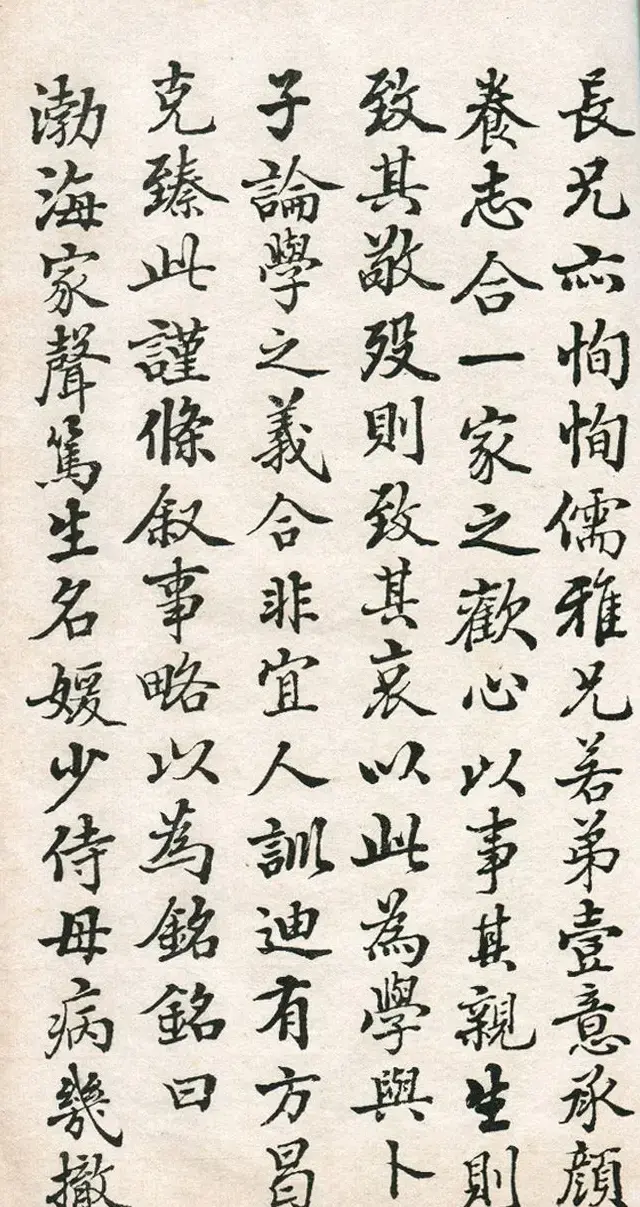 長兄亦恂恂儒雅兄若弟壹意承顔
養志合一家之歡心以事其親生則
致其敬歿則致其哀以此為學與卜
子論學之義合非宜人訓迪有方曷
克臻此謹條叙事略以為銘銘曰
渤海家聲篤生名媛少侍母病幾撤